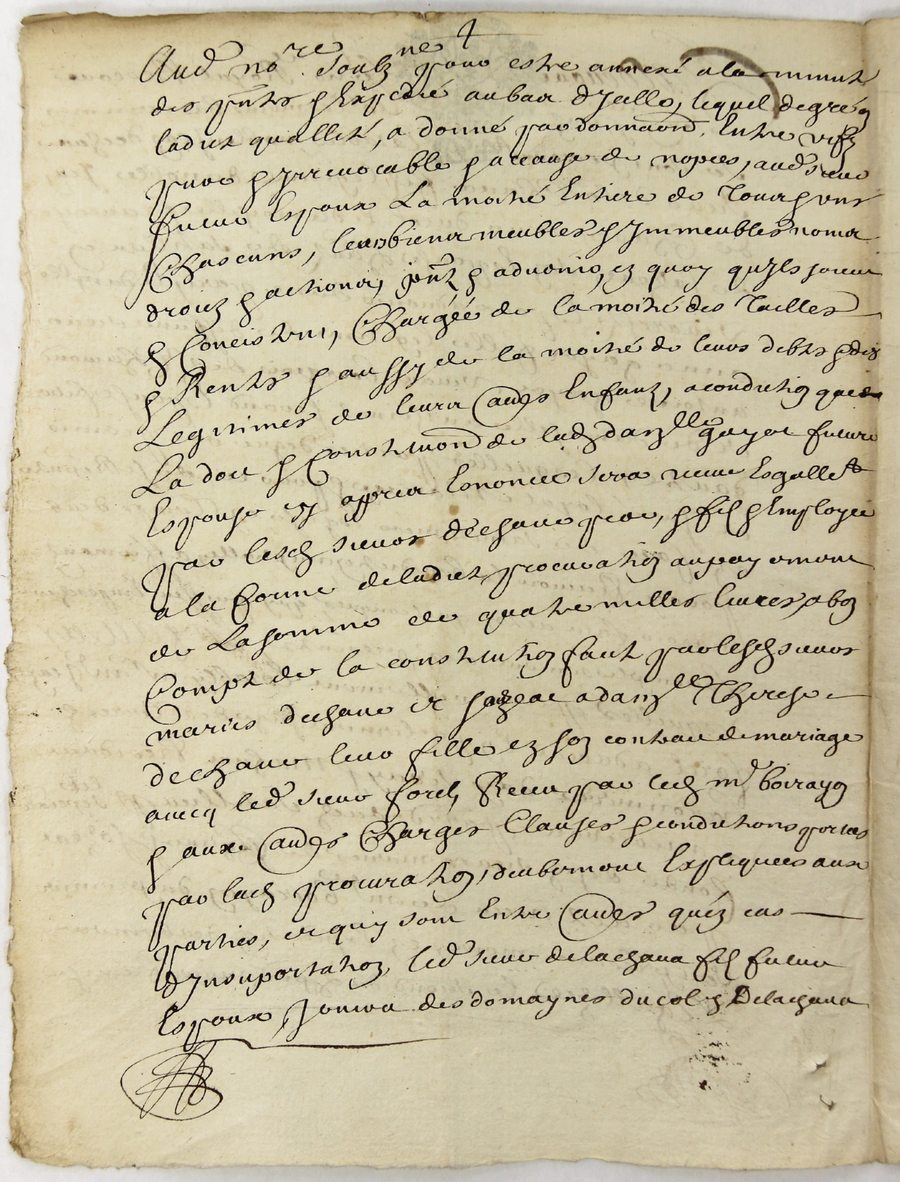 Aud no.re soubne 4 pour estre annexé a la minutte
des pnts p Expedié au bar d'Jallo, lequel de gré en
ladict quallité, a donné par donnaõn Entre vifz
pure p Jrrevocable p a cause de nopces, aud sieur
futur Espoux La moitié Entiere de Tour p uns
Chascuns, leurs biens meubles p Jmmeubles noms
droicz p actions, pnt p advenir, en quoy qu'Jls soient
p Concistent, Chargée de la moitié des Tailles
p Rente p aussy de la moitié de leurs debts p des
Legitimes de leurs Enfanz, a condition que
La dot p Constituon de lad dazlle future
Espouse cy appres Enoncée sera
par lesd sieurs dechava pere, p filz p Employée
a la forme deladict procuration au payement
de La somme de quatre milles livres, a bon
Compt de la constitution faict par lesd sieurs
mariés dechava et a dazlle Therese
dechava leur fille en son contrat de mariage
avecq led sieur forel, Receu par led mr boirayon
p aux Charges Clauses p conditions portées
par lad procuration, deubement Expliquées aux
parties, et quy sont Entre qu'en cas
d'Jnsuportation, led sieur delachava filz futur
Espoux, Jouira des domaynes du col p Delachava